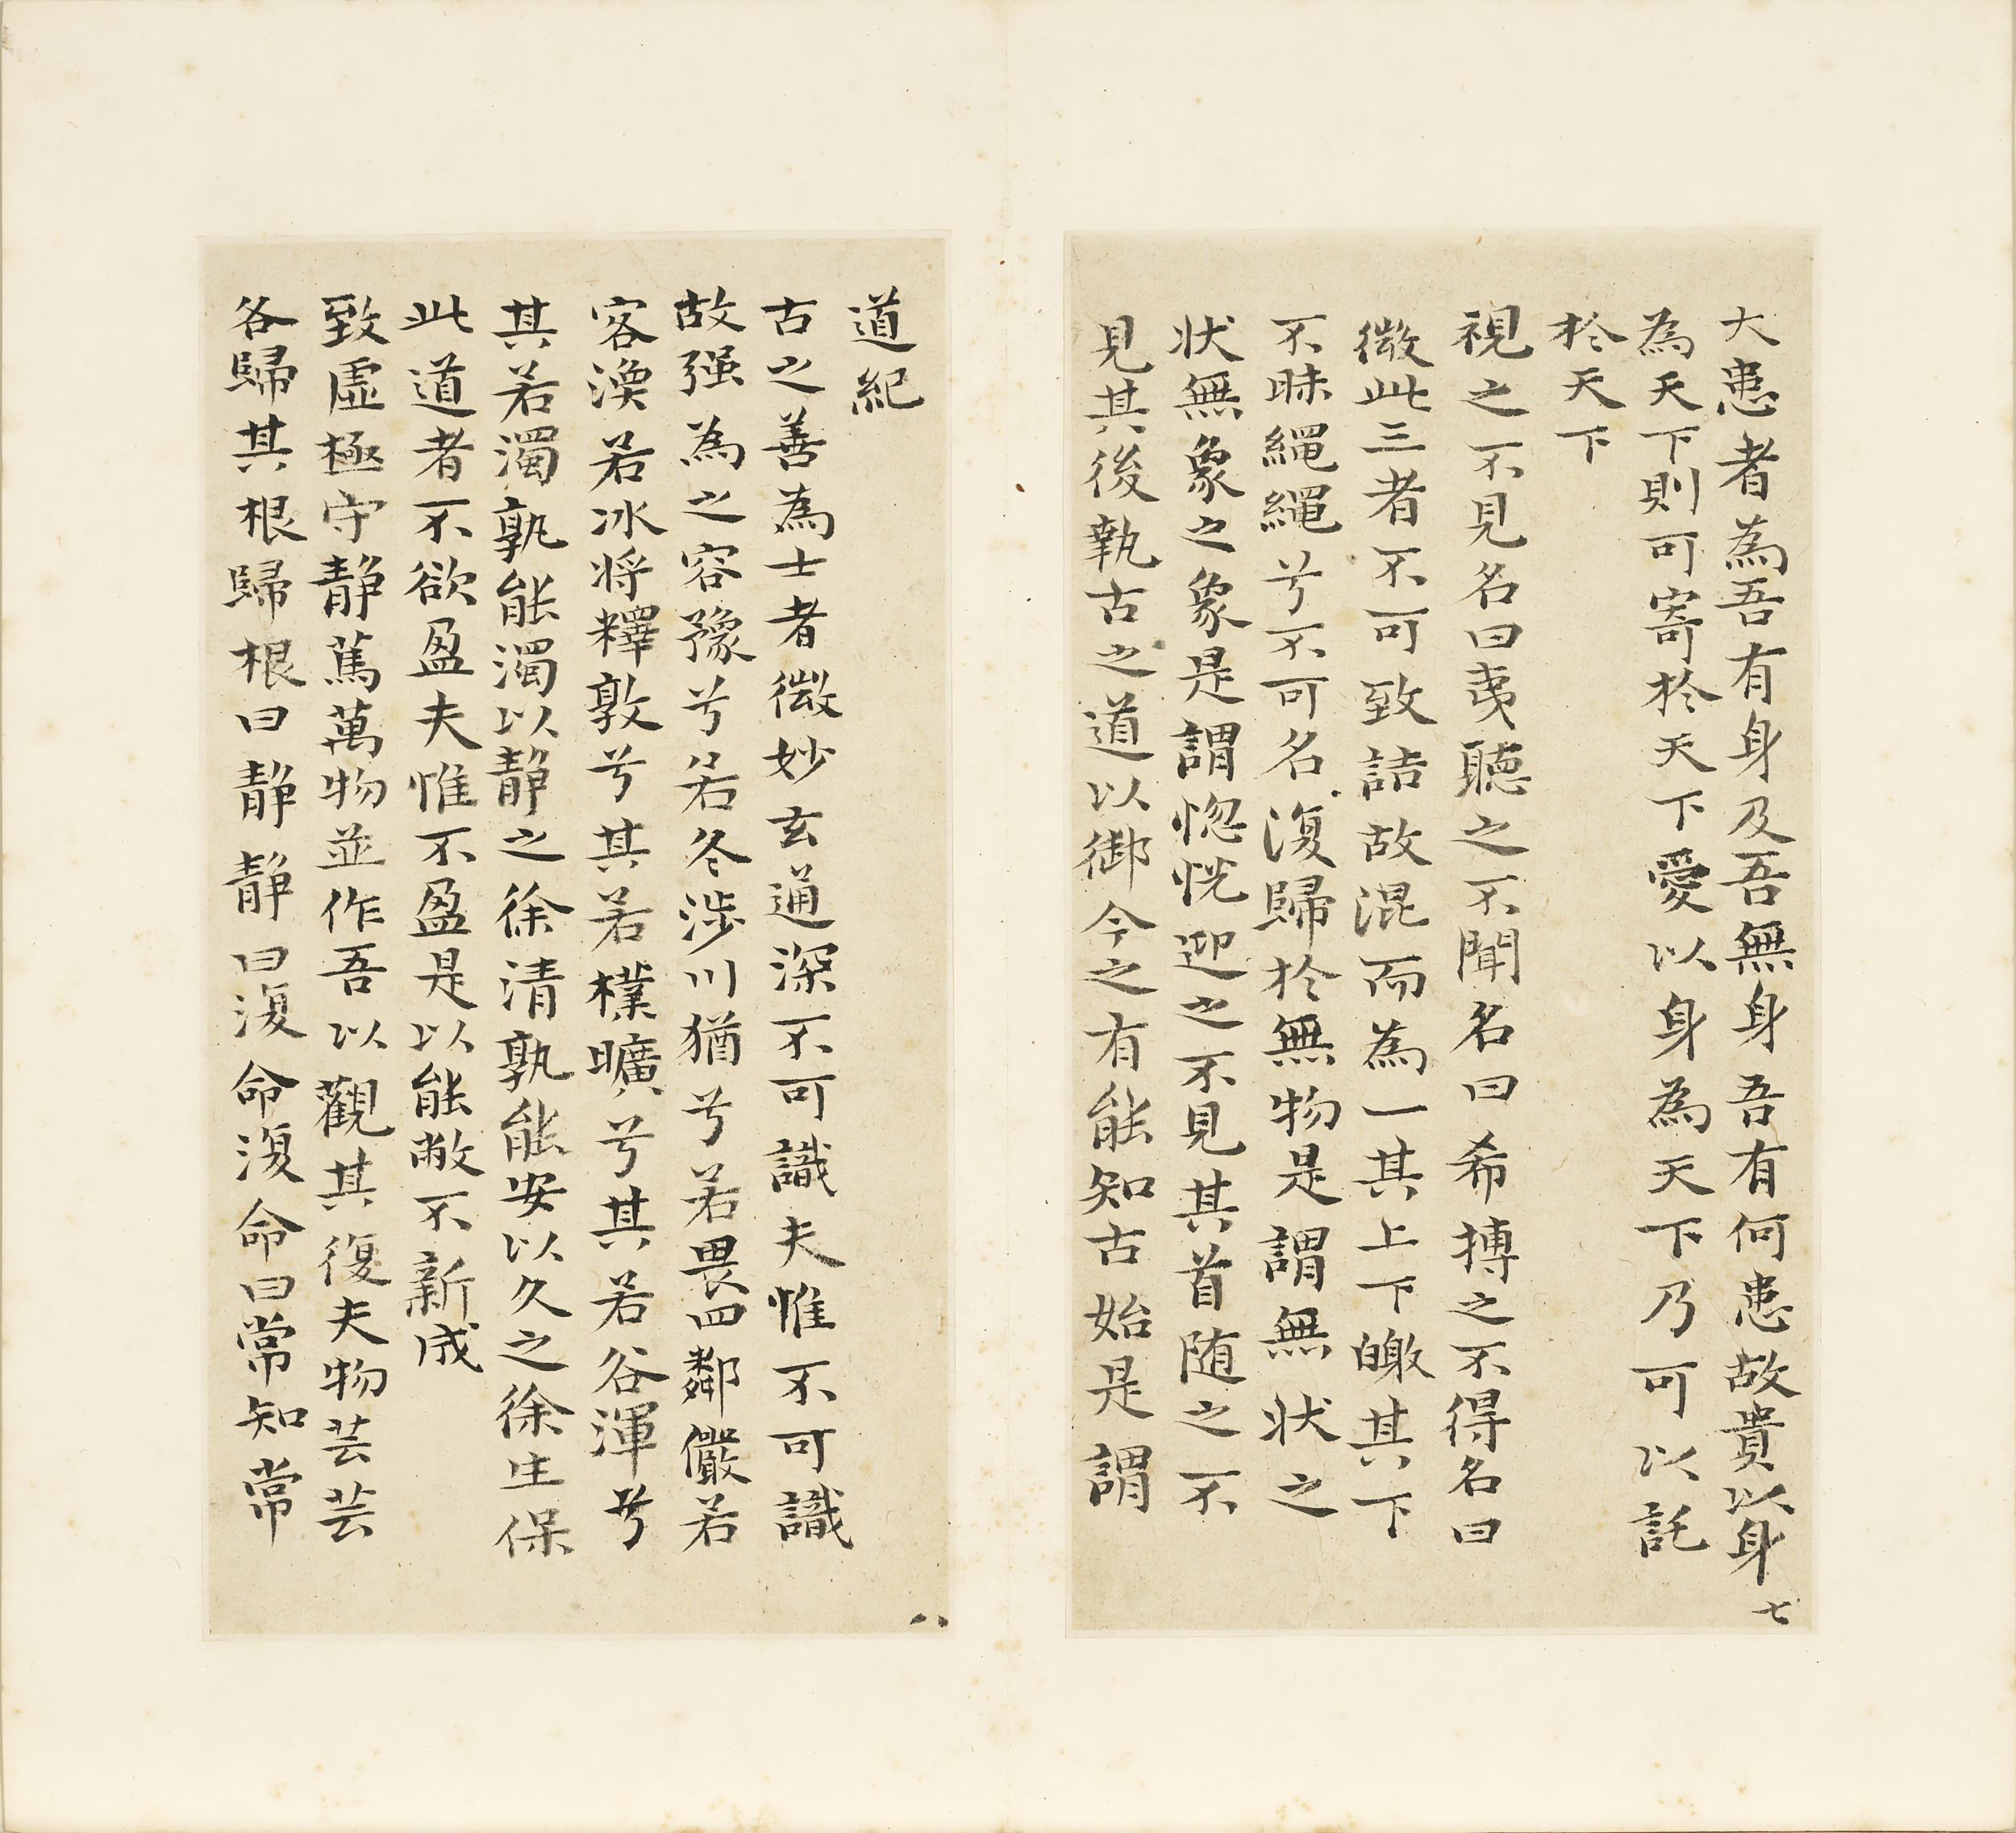 大患者為吾有身及吾無身吾有何患故貴以身
為天下則可寄於天下愛以身為天下乃可以託
於天下
視之不見名曰夷聽之不聞名曰希搏之不得名曰
微此三者不可致詰故混而為一其上下皦其下
不昧繩繩兮不可名復歸於無物是謂無狀之
狀無象之象是謂惚恍迎之不見其首随之不
見其後執古之道以御今之有能知古始是謂
七
道紀
古之善為士者微妙玄通深不可識夫惟不可識
故强為之容豫兮若冬涉川猶兮若畏四鄰儼若
客渙若冰将釋敦兮其若樸曠兮其若谷渾兮
其若濁孰能濁以静之徐清孰能安以久之徐生保
此道者不欲盈夫惟不盈是以能敝不新成
致虛極守静篤萬物並作吾以觀其復夫物芸芸
各歸其根歸根曰静静曰復命復命曰常知常
八